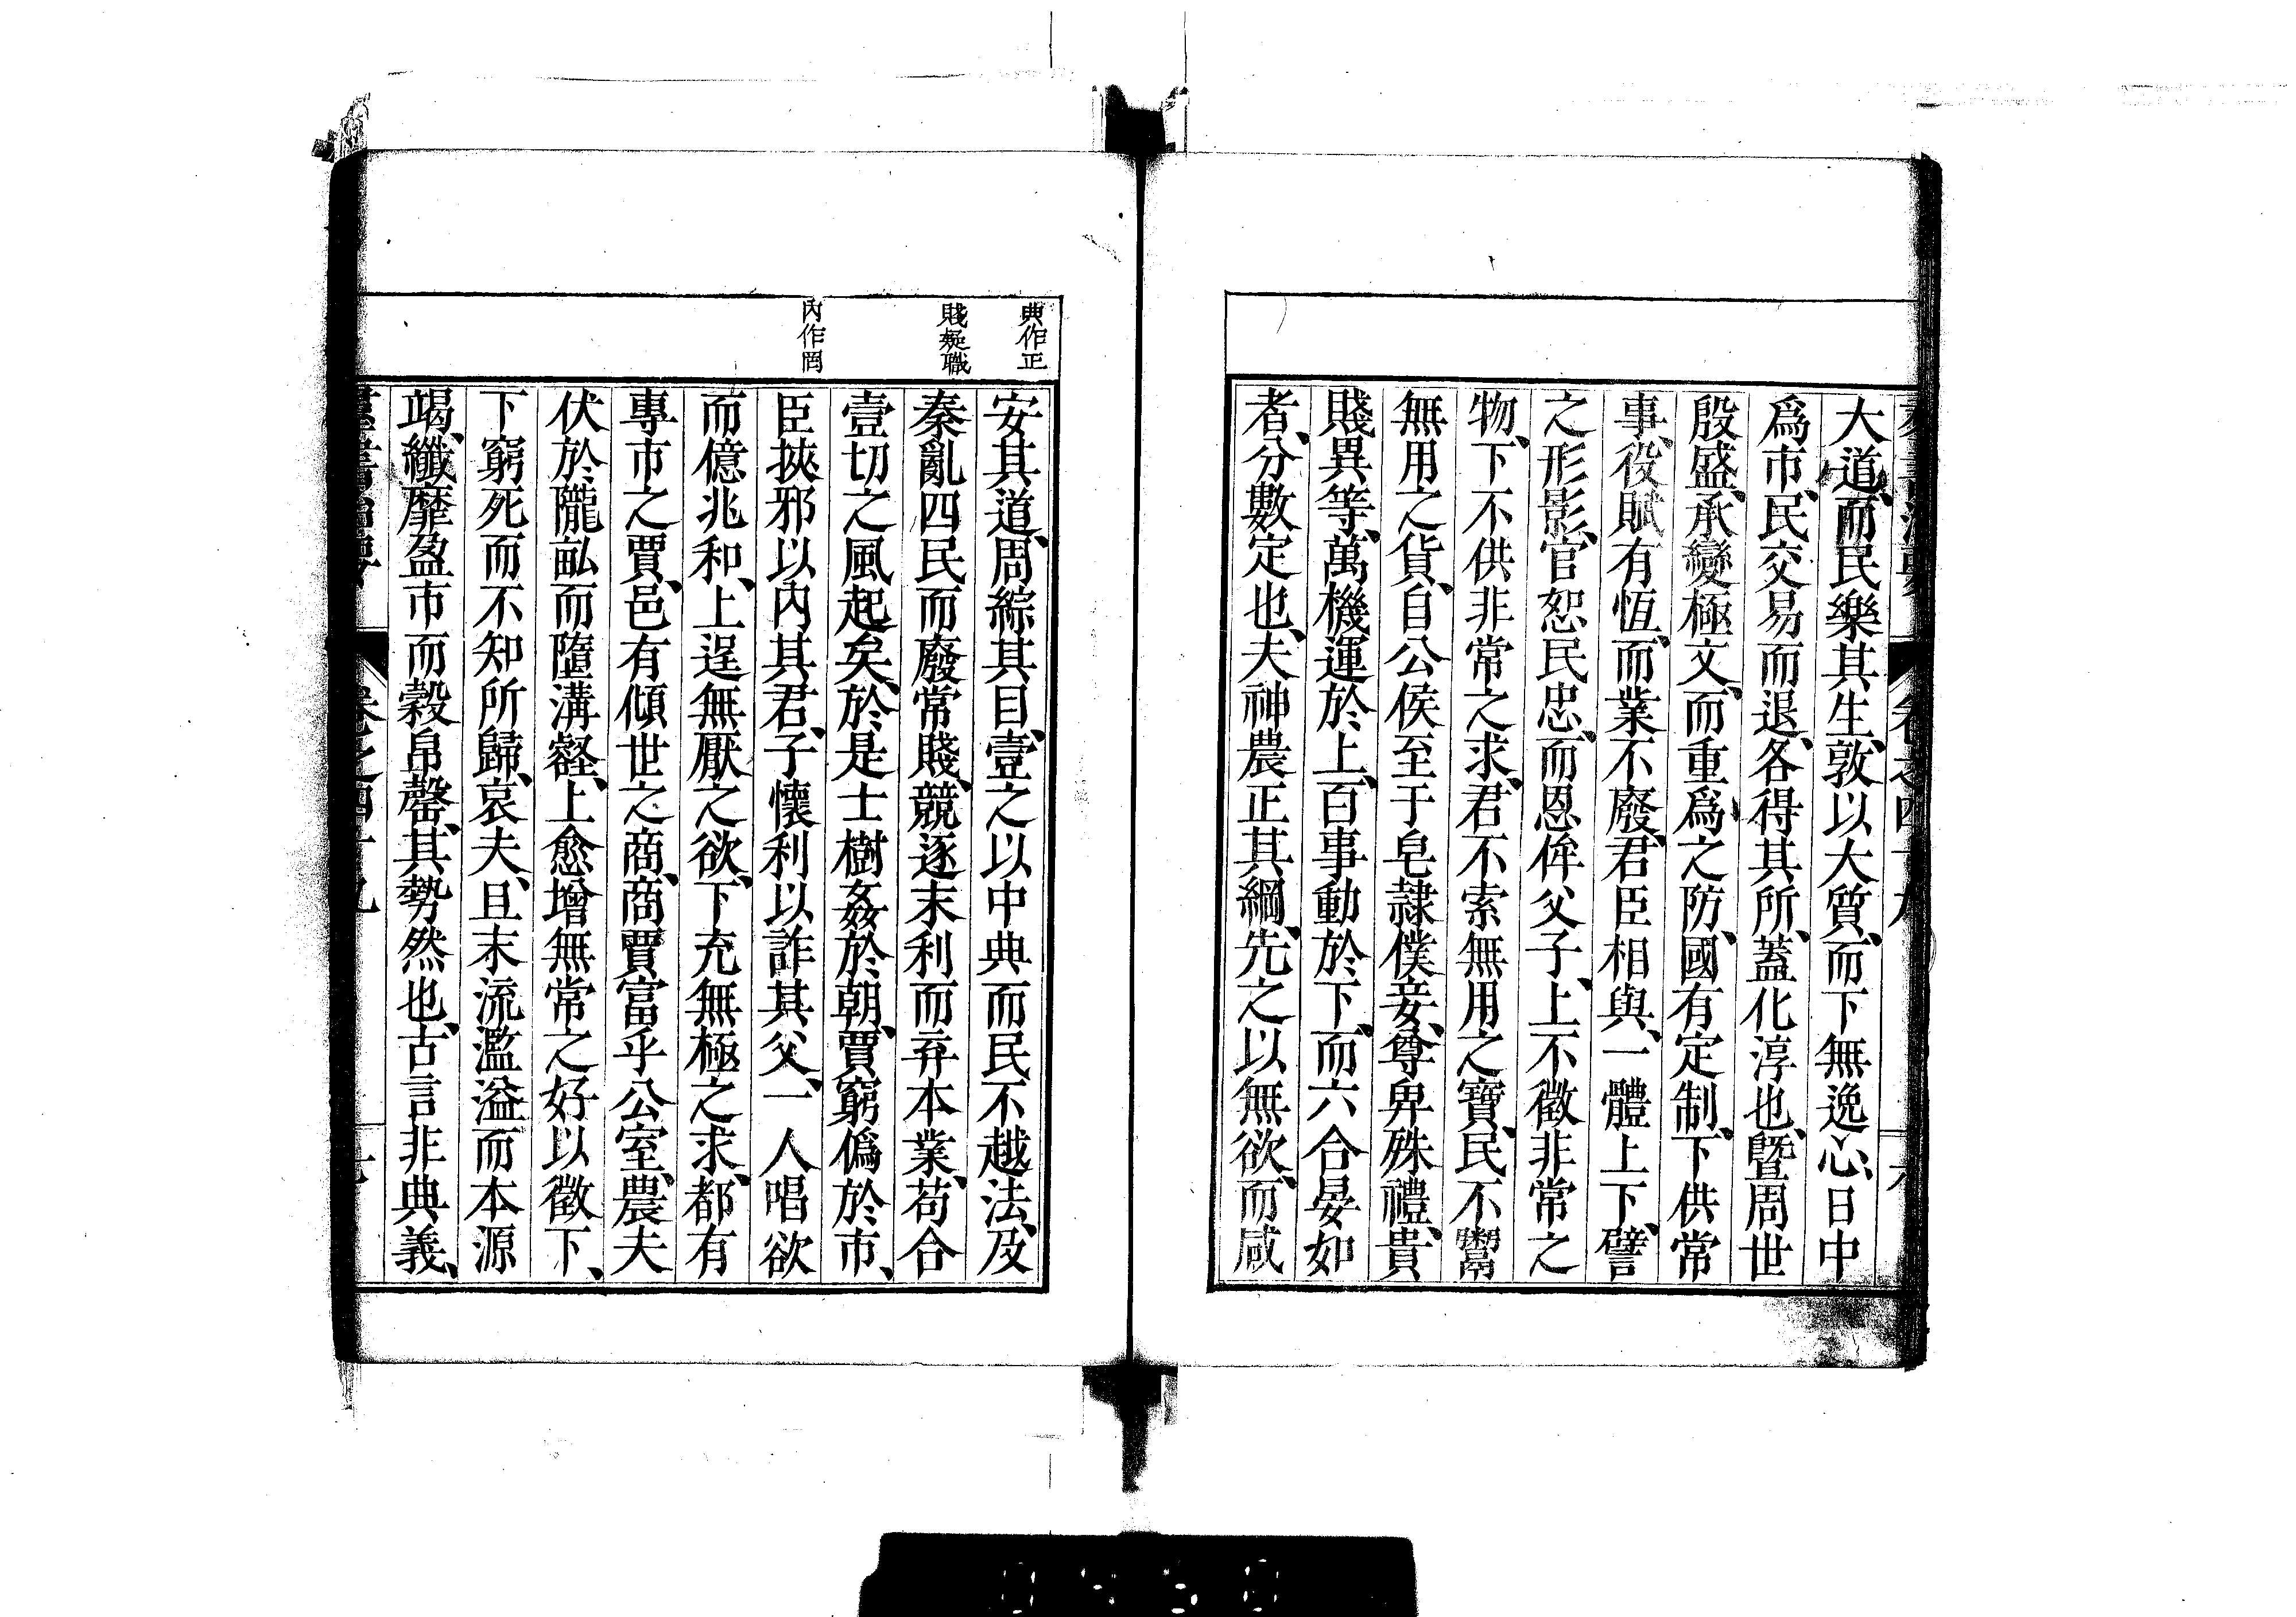 大道、而民樂其生、敦以大質、而下無逸心、日中
爲市、民交易而退、各得其所、蓋化淳也、曁周世
殷盛、承變極文、而重爲之防、國有定制、下供常
事、役賦有恆、而業不廢、君臣相與、一體上下、譬
之形影、官恕民忠、而恩侔父子、上不徵非常之
物、下不供非常之求、君不索無用之寶、民不鬻
無用之貨、自公侯至于皂隷僕妾、尊卑殊禮、貴
賤異等、萬機運於上、百事動於下、而六合晏如
者、分數定也、夫神農正其綱、先之以無欲、而咸
典作正
賤疑職
內作罔
安其道、周綜其目、壹之以中典而民不越法、及
秦亂四民而廢常賤、競逐末利而弃本業、苟合
壹切之風起矣、於是士樹姦於朝、賈窮僞於市、
臣挾邪以內其君、子懷利以詐其父、一人唱欲
而億兆和、上逞無厭之欲、下充無極之求、都有
專市之賈、邑有傾世之商、商賈富乎公室、農夫
伏於隴畝而墮溝壑、上愈增無常之好以徵下、
下窮死而不知所歸、哀夫、且末流濫溢而本源
竭、纖靡盈市而穀帛罄、其勢然也、古言非典義、